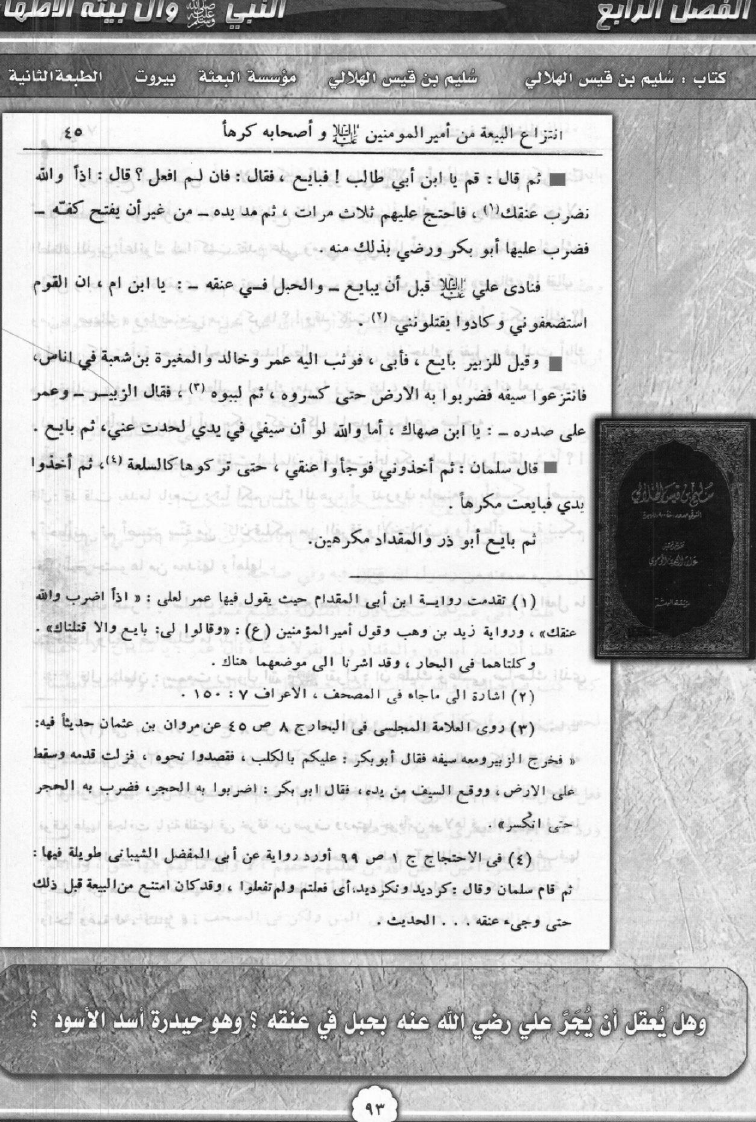 الفصل الرابع
النبي ﷺ وآل بيته الأطها
كتاب : سُليم بن قيس الهلالي سُليم بن قيس الهلالي مؤسسة البعثة بيروت الطبعة الثانية
انتزاع البيعة من أمير المومنين عليه السلام و أصحابه كرهاً ٤٥
■ ثم قال : قم يا ابن أبي طالب ! فبايع ، فقال : فان لـم افعل ؟ قال : اذاً والله
نضرب عنقك(١) ، فاحتج عليهم ثلاث مرات ، ثم مد يده ــ من غير أن يفتح كفـّه ــ
فضرب عليها أبو بكر ورضي بذلك منه .
فنادى علي عليه السلام قبل أن يبايع ــ والحبل فـي عنقه ــ : يا ابن ام ، ان القوم
استضعفوني وكادوا يقتلونني (٢) .
■ وقيل للزبير بايع ، فأبى ، فوثب اليه عمر وخالد والمغيرة بن شعبة في اناص،
فانتزعوا سيفه فضربوا به الارض حتى كسروه ، ثم لببوه (٣) ، فقال الزبيـر ــ وعمر
على صدره ــ : يا ابن صهاك ، أما والله لو أن سيفي في يدي لحدت عني، ثم بايع .
■ قال سلمان : ثم أخذوني فوجأوا عنقي ، حتى تركوها كالسلعة (٤)، ثم أخذوا
يدي فبايعت مكرهاً .
ثم بايع أبو ذر والمقداد مكرهين.
(١) تقدمت روايـة ابن أبى المقدام حيث يقول فيها عمر لعلى : « اذاً اضرب والله
عنقك» ، ورواية زيد بن وهب وقول أمير المؤمنين (ع) : «وقالوا لى: بايع والا قتلناك» .
وكلتاهما فى البحار ، وقد اشرنا الى موضعهما هناك .
(٢) اشارة الى ماجاء فى المصحف ، الاعراف ٧ : ١٥٠ .
(٣) روى العلامة المجلسى فى البحار ج ٨ ص ٤٥ عن مروان بن عثمان حديثاً فيه:
« فخرج الزبير ومعه سيفه فقال أبو بكر : عليكم بالكلب ، فقصدوا نحوه ، فزلت قدمه وسقط
على الارض ، ووقع السيف من يده ، فقال ابو بكر : اضربوا به الحجر، فضرب به الحجر
حتى انكسر» .
(٤) فى الاحتجاج ج ١ ص ٩٩ أورد رواية عن أبى المفضل الشيبانى طويلة فيها :
ثم قام سلمان وقال : كرديد ونكرديد، أى فعلتم ولم تفعلوا ، وقد كان امتنع من البيعة قبل ذلك
حتى وجىء عنقه . . . الحديث .
سليم بن قيس الهلالي
وهل يُعقل أن يُجَرَّ علي رضي الله عنه بحبل في عنقه ؟ وهو حيدرة أسد الأسود ؟
٩٣